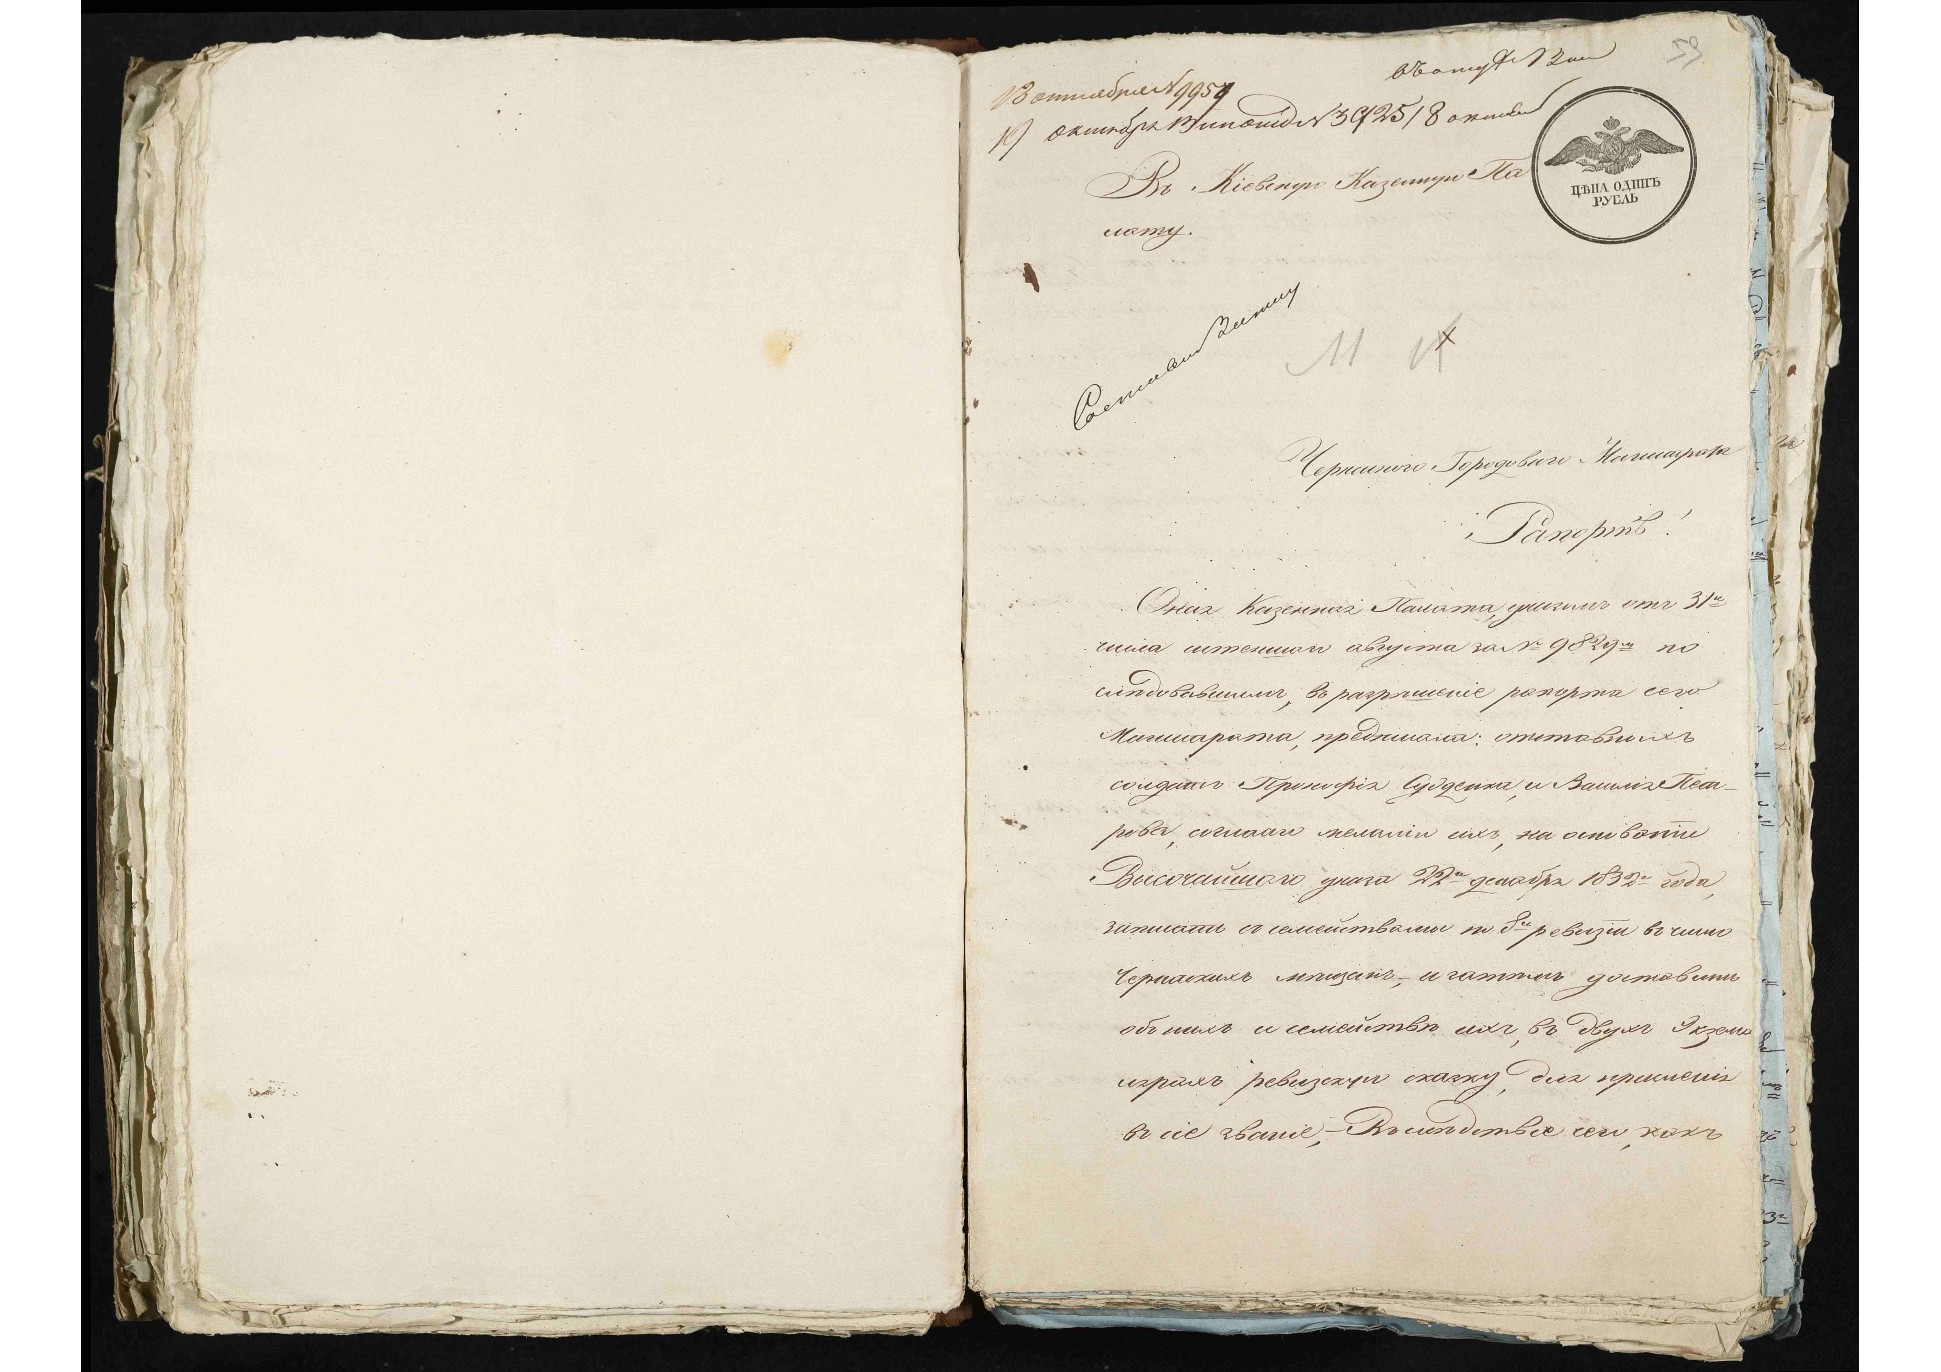 59
13 октября N 9959
19 октября N 3925 / 8
Въ Кіевскую Казенную Па
лату.
ЦѢНА ОДИНЪ
РУБЛЬ
Черкаского Городоваго Магистрата
Рапортъ!
Оная Казенная Палата, указомъ отъ 31го
числа истекшаго августа за № 9829м по
слѣдовавшимъ, въ разрѣшеніе рапорта сего
Магистрата, предписала: отставныхъ
солдатъ Прокофія Судденка, и Василія Пет-
рова, согласно желанію ихъ, на основаніи
Высочайшаго указа 22го декабря 1832го года,
записать съ семействами по 8й ревизіи въ число
Черкаскихъ мѣщанъ, и затѣмъ доставить
объ нихъ и семействѣ ихъ, въ двухъ Экземп
лярахъ ревизскую сказку, для причисленія
въ сіе званіе, - Въ слѣдствіе сего, какъ